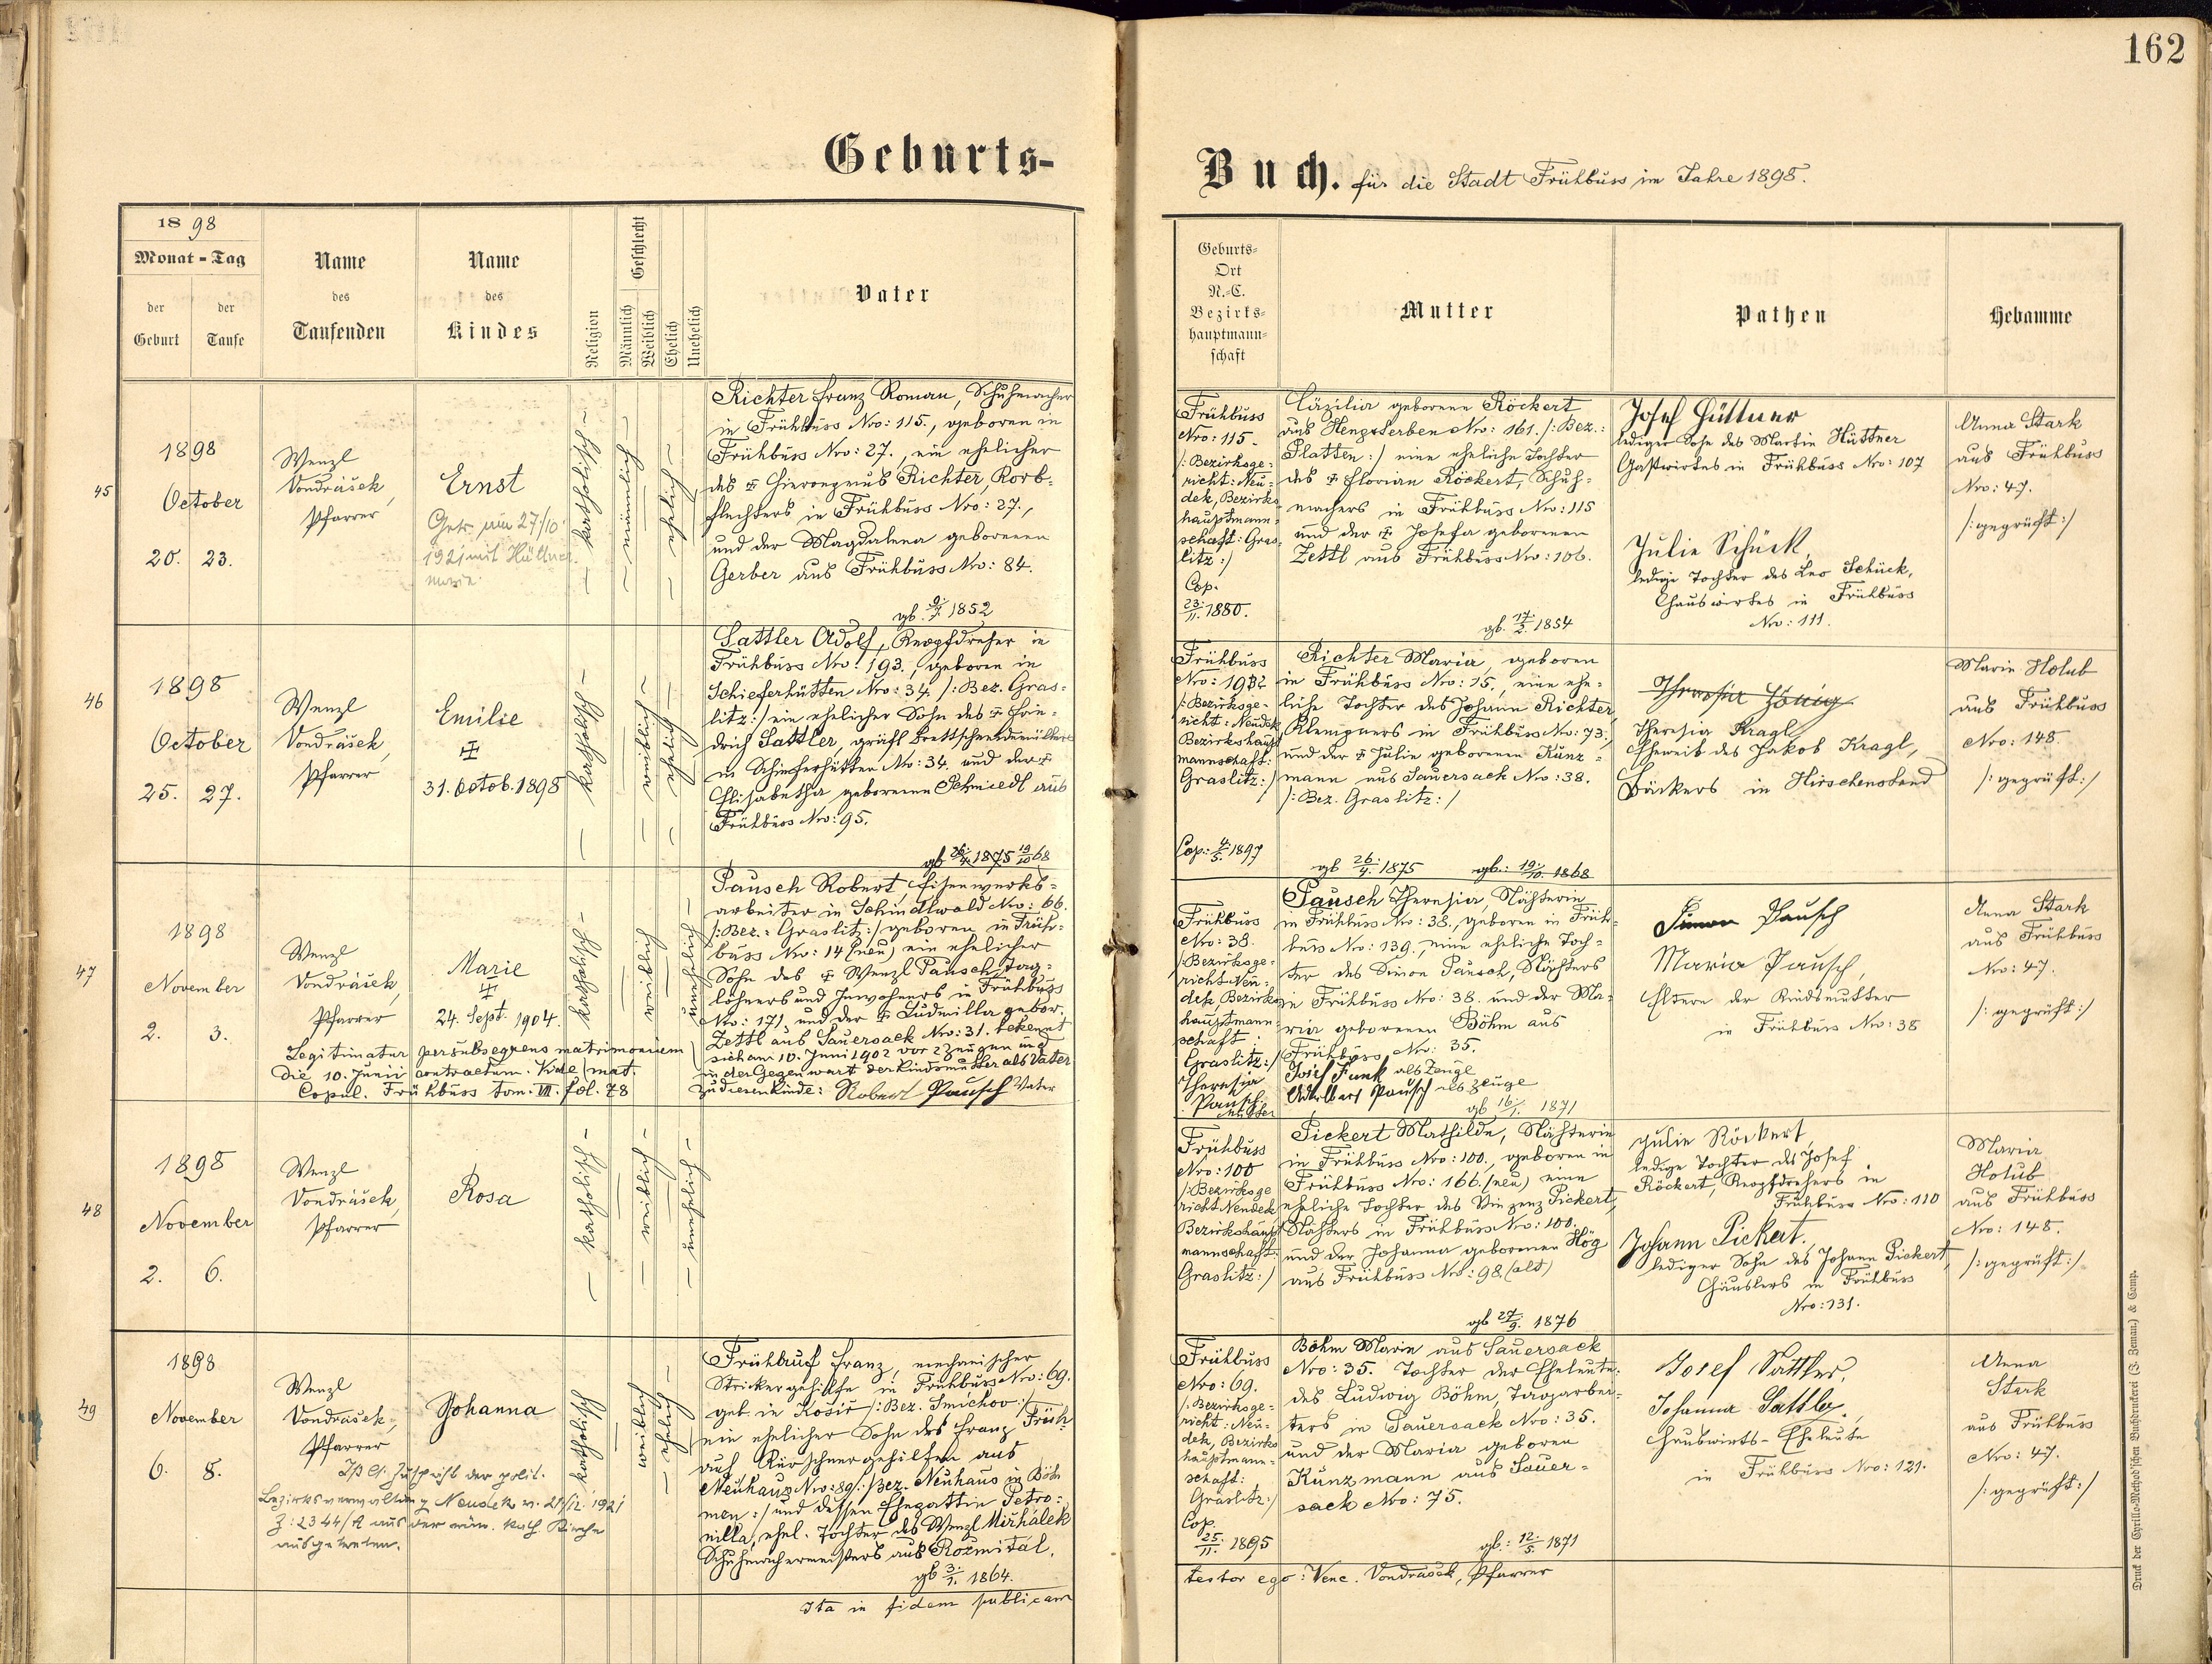 162
Geburts-
Buch. für die Stadt Frühbuss im Jahre 1898.
1898
Monat - Tag
der Geburt
der Taufe
Name des Taufenden
Name des Kindes
Religion
Geschlecht
Männlich
Weiblich
Ehelich
Unehelich
Vater
Geburts-
Ort
N.-C.
Bezirks-
hauptmann-
schaft
Mutter
Pathen
Hebamme
45
1898
October
20. 23.
Wenzl
Vondrášek,
Pfarrer
Ernst
Getr. am 27/10
1921 mit Hüttner
Marie
– katholisch –
– männlich –
– ehelich –
Richter Franz Roman, Schuhmacher
in Frühbuss Nro: 115., geboren in
Frühbuss Nro: 27., ein ehelicher
des ✠ Hieronymus Richter, Korb-
flechters in Frühbuss Nro: 27.,
und der Magdalena geborenen
Gerber aus Frühbuss Nro: 84.
gb. 9/7. 1852
Frühbuss
Nro: 115.
/: Bezirksge-
richt: Neu-
dek, Bezirks-
hauptmann-
schaft: Gras-
litz :/
Cop.
23./11. 1880.
Cäzilia geborene Röckert
aus Hengsterben Nro: 161. /: Bez.:
Platten :/ eine eheliche Tochter
des ✠ Florian Röckert, Schuh-
machers in Frühbuss Nro: 115
und der ✠ Josefa geborenen
Zettl aus Frühbuss Nro: 106.
gb. 17./2. 1854
Josef Hüttner
lediger Sohn des Martin Hüttner
Gastwirtes in Frühbuss Nro: 107
Julie Schück,
ledige Tochter des Leo Schück,
Hauswirtes in Frühbuss
Nro: 111.
Anna Stark
aus Frühbuss
Nro: 47.
/: geprüft :/
46
1898
October
25. 27.
Wenzl
Vondrášek,
Pfarrer
Emilie
✠
31. Octob. 1898
– katholisch –
– weiblich –
– ehelich –
Sattler Adolf, Knopfdreher in
Frühbuss Nro: 193., geboren in
Schieferhütten Nro: 34. /: Bez. Gras-
litz :/ ein ehelicher Sohn des ✠ Frie-
drich Sattler, gräfl. Brettschneidemüllers
in Schieferhütten Nro: 34. und der ✠
Elisabetha geborenen Schmiedl aus
Frühbuss Nro: 95.
gb 26./4. 1875 19/10 68
Frühbuss
/: Bezirksge-
richt: Neudek
Bezirkshaupt
mannschaft:
Graslitz :/
Cop: 4./5. 1897
Richter Maria, geboren
in Frühbuss Nro: 15., eine ehe-
liche Tochter des Johann Richter,
Klempners in Frühbuss Nro: 73.,
und der ✠ Julie geborenen Kunz-
mann aus Sauersack Nro: 38.
/: Bez. Graslitz :/
gb 26./4. 1875 gb.: 19./10. 1868
Theresia König
Theresia Kragl,
Eheweib des Jakob Kragl,
Bäckers in Hirschenstand
Marie Holub
aus Frühbuss
Nro: 148.
/: geprüft :/
47
1898
November
2. 3.
Wenzl
Vondrášek,
Pfarrer
Marie
✠
24. Sept. 1904.
katholisch –
weiblich
unehelich –
Legitimatur per subsequens matrimonium
die 10. Junii contractum. Vide mat.
Copul. Frühbuss tom. VII. fol. 78
Pausch Robert, Eisenwerks-
arbeiter in Schindlwald Nro: 66.
/: Bez.: Graslitz :/ geboren in Früh-
buss Nro: 14 (neu) ein ehelicher
Sohn des ✠ Wenzl Pausch, Tag-
löhners und Inwohners in Frühbuss
Nro: 171, und der ✠ Ludmilla gebor.
Zettl aus Sauersack Nro: 31. bekennt
sich am 10. Juni 1902 vor 2 Zeugen und
in der Gegenwart der Kindsmutter als Vater
zu diesem Kinde: Robert Pausch Vater
Frühbuss
Nro: 38.
/: Bezirksge-
richt Neu-
dek Bezirks
hauptmann-
schaft:
Graslitz :/
Theresia
Pausch
Mutter
Pausch Theresia, Nähterin
in Frühbuss Nro: 38., geboren in Früh-
buss Nro: 139., eine eheliche Toch-
ter des Simon Pausch, Nähters
in Frühbuss Nro: 38. und der Ma-
ria geborenen Böhm aus
Frühbuss Nro: 35.
Josef Funk als Zeuge
Adalbert Pausch als Zeuge
gb 16./1. 1871
Simon Pausch
Maria Pausch,
Eltern der Kindsmutter
in Frühbuss Nro: 38
Anna Stark
aus Frühbuss
Nro: 47.
/: geprüft :/
48
1898
November
2. 6.
Wenzl
Vondrášek,
Pfarrer
Rosa
– katholisch –
– weiblich –
– unehelich –
Frühbuss
Nro: 100
/: Bezirksge
richt Neudek
Bezirkshaupt
mannschaft:
Graslitz :/
Pickert Mathilde, Nähterin
in Frühbuss Nro: 100., geboren in
Frühbuss Nro: 166. (neu) eine
eheliche Tochter des Vinzenz Pickert,
Nähters in Frühbuss Nro: 100.
und der Johanna geborenen Hög
aus Frühbuss Nro: 98. (alt)
gb 27/9. 1876
Julie Röckert,
ledige Tochter des Josef
Röckert, Knopfdrehers in
Frühbuss Nro: 110
Johann Pickert.
lediger Sohn des Johann Pickert,
Häuslers in Frühbuss
Nro: 131.
Maria
Holub
aus Frühbuss
Nro: 148.
/: geprüft :/
49
1898
November
6. 8.
Wenzl
Vondrášek,
Pfarrer
Johanna
katholisch
weiblich
– ehelich –
Zuschrift der polit.
Bezirksverwaltung Neudek v. 21/12 1921
Z: 2344/A aus der röm. kath. Kirche
ausgetreten.
Frühbuss
Nro: 69.
/: Bezirksge-
richt: Neu-
dek, Bezirks
hauptmann-
schaft:
Graslitz :/
Cop.
25./11. 1895
Frühauf Franz, mechanischer
Strickergehilfe in Frühbuss Nro: 69.
geb. in Košiř /: Bez. Smichov :/
ein ehelicher Sohn des Franz Früh-
auf Kürschnergehilfen aus
Neuhaus Nro: 89 /: Bez. Neuhaus in Böh-
men :/ und dessen Ehegattin Petro-
nilla, ehel. Tochter des Wenzl Mirhálek
Schuhmachermeisters aus Rožmitál.
gb 3./1. 1864.
Böhm Marie aus Sauersack
Nro: 35. Tochter der Eheleute:
des Ludwig Böhm, Tagarbei-
ters in Sauersack Nro: 35.
und der Maria geboren
Kunzmann aus Sauer-
sack Nro: 75.
gb.: 12./5. 1871
Josef Sattler,
Johanna Sattler,
Hauswirts-Eheleute
in Frühbuss Nro: 121.
Anna
Stark
aus Frühbuss
Nro: 47.
/: geprüft :/
Ita in fidem publicam
testor ego: Venc. Vondrášek, Pfarrer
Druck der Cyrillo-Method'schen Buchdruckerei (J. Zeman) & Comp.